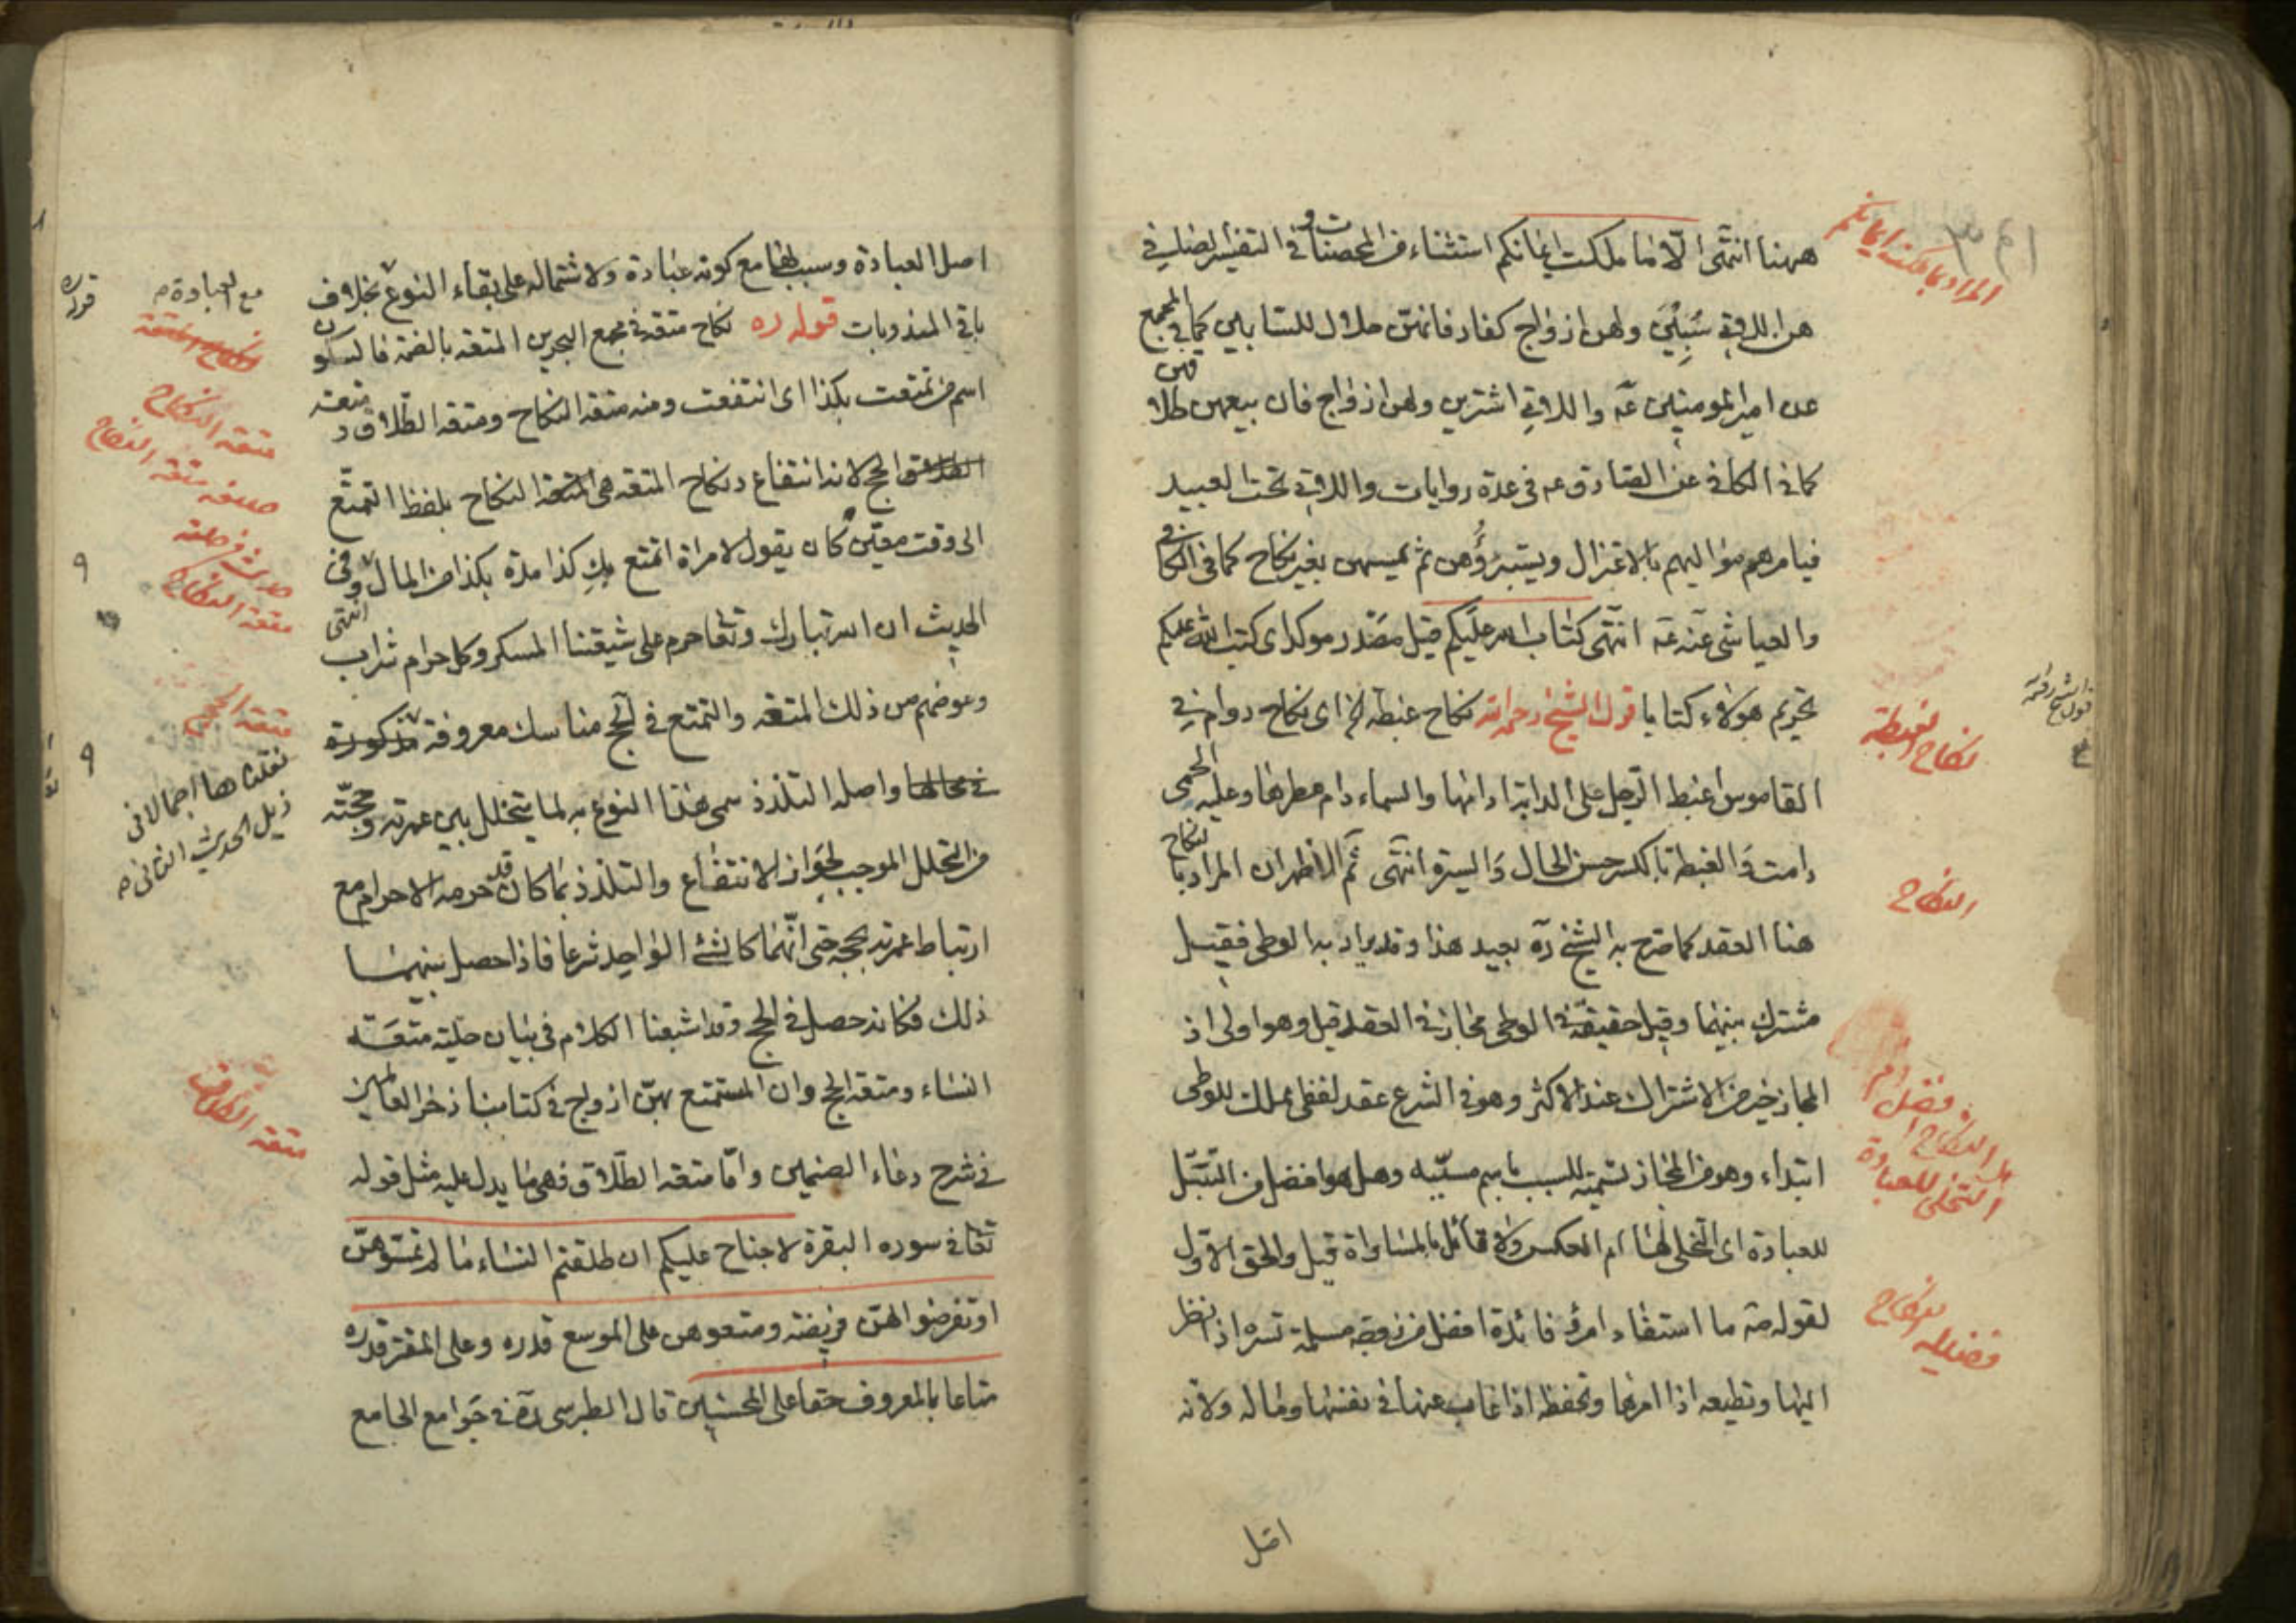 ههنا انتهى الّا ما ملكت ايمانكم استثناء من المحصنات و في التفسير الصافي
هن اللاتي سُبِيْنَ ولهن ازواج كفار فانهنّ حلال للسابين كما في المجمع
عن امير المومنين عه واللاتي اشترين ولهن ازواج فان بيعهن طلاقهن
كما في الكافي عن الصادق عه في عدة روايات واللاتي تحت العبيد
فيامرهم مواليهم بالاعتزال ويستبرؤُهن ثم يمسهن بغير نكاح كما في الكافي
والعياشي عنه عه انتهى كتاب الله عليكم قيل مصدر موكد اى كتب الله عليكم
تحريم هولاء كتابا قول الشيخ رحمه الله نكاح غبطة الخ اى نكاح دوام في
القاموس اغبط الرّحل على الدابة ادامها والسماء دام مطرها وعليه الحمى
دامت وَالغبطة بالكسر حسن الحال وَالمسرة انتهى ثم الاظهر ان المراد بالنكاح
هنا العقد كما صرح به الشيخ ره بعيد هذا وقد يراد به الوطى فقيل
مشترك بينهما وقيل حقيقة في الوطى مجاز في العقد قيل وهو اولى اذ
المجاز خير من الاشتراك عند الاكثر وهو في الشرع عقد لفظى مملك للوطى
ابتداء وهو من المجاز تسمية للسبب باسم مسبّبه وهل هو افضل من التبتّل
للعبادة اى التخلى لها ام العكس ولا قائل بالمساواة قيل والحق الاول
لقوله صه ما استفاد امرؤ فائدة افضل من زوجة مسلمة تسره اذا نظر
اليها وتطيعه اذا امرها وتحفظه اذا غاب عنها في نفسها وماله ولانه
اصل
المراد بما ملكت ايمانكم
نكاح الغبطة
النكاح
هل النكاح افضل ام
التخلى للعبادة
فضيلة النكاح
اصل العبادة وسبب لها مع كونه عبادة ولاشتماله على بقاء النوع بخلاف
باقي المندوبات قوله ره نكاح متعة في مجمع البحرين المتعة بالضمّ فالسكون
اسم من تمتعت بكذا اى انتفعت ومنه متعة النكاح ومتعة الطّلاق و متعة
الحج لانه انتفاع ونكاح المتعة هى النكاح بلفظ التمتّع
الى وقت معيّن كان يقول لامراة اتمتع بكِ كذا مدة بكذا من المال وفي
الحديث ان الله تبارك وتعا حرم على شيعتنا المسكر وكل حرام شراب
وعوضهم من ذلك المتعة انتهى والتمتع في الحج مناسك معروفة مذكورة
في محالها واصله التلذذ سمى هذا النوع به لما يتخلل بين عمرته وحجّته
من التحلل الموجب لجواز الانتفاع والتلذذ بما كان قد حرمه الاحرام مع
ارتباط عمرته بحجه حتى انّهما كالشئ الواحد شرعا فاذا حصل بينهما
ذلك فكانه حصل في الحج وقد اشبعنا الكلام في بيان حلية متعة
النساء ومتعة الحج وان المستمتع بهنّ ازواج في كتابنا ذخر العالمين
في شرح دعاء الصنمين وامّا متعة الطّلاق فهى ما يدل عليه مثل قوله
تعا في سوره البقرة لا جناح عليكم ان طلقتم النساء ما لم تمسّوهنّ
او تفرضوا لهنّ فريضة ومتعوهن على الموسع قدره وعلى المقتر قدره
متاعا بالمعروف حقا على المحسنين قال الطبرسى ره في جَوامع الجامع
مع العبادة
قوله
متعة النكاح
صيغه متعة النكاح
متعة النكاح
متعة الحج
نقلناها اجمالا في
ذيل الحديث الثانى
متعة الطلاق